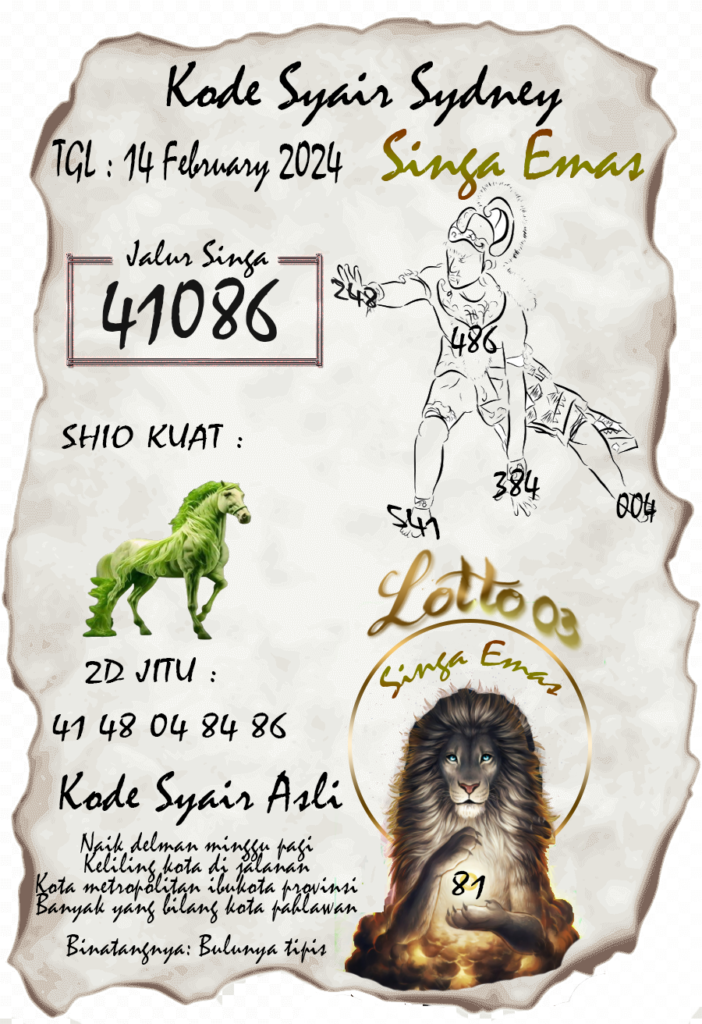 Kode Syair Sydney
TGL : 14 February 2024
Singa Emas
Jalur Singa
41086
248
486
384
541
004
SHIO KUAT :
Lotto 03
Singa Emas
2D JITU :
41 48 04 84 86
Kode Syair Asli
Naik delman minggu pagi
Keliling kota di jalanan
Kota metropolitan ibukota provinsi
Banyak yang bilang kota pahlawan
81
Binatangnya: Bulunya tipis